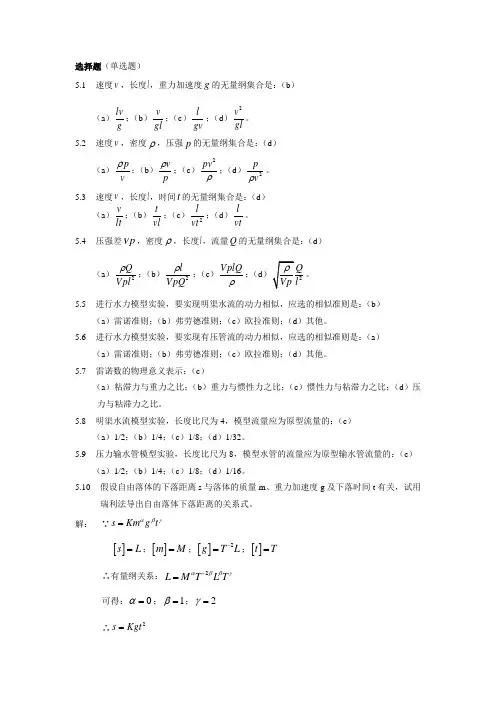 选择题（单选题）
5.1 速度v，长度l，重力加速度g的无量纲集合是：（b）
（a）lv/g；（b）v/gl；（c）l/gv；（d）v²/gl。
5.2 速度v，密度ρ，压强p的无量纲集合是：（d）
（a）ρp/v；（b）ρv/p；（c）pv²/ρ；（d）p/ρv²。
5.3 速度v，长度l，时间t的无量纲集合是：（d）
（a）v/lt；（b）t/vl；（c）l/vt²；（d）l/vt。
5.4 压强差Vp，密度ρ，长度l，流量Q的无量纲集合是：（d）
（a）ρQ/Vpl²；（b）ρl/VpQ²；（c）VplQ/ρ；（d）√(ρ/Vp) Q/l²。
5.5 进行水力模型实验，要实现明渠水流的动力相似，应选的相似准则是：（b）
（a）雷诺准则；（b）弗劳德准则；（c）欧拉准则；（d）其他。
5.6 进行水力模型实验，要实现有压管流的动力相似，应选的相似准则是：（a）
（a）雷诺准则；（b）弗劳德准则；（c）欧拉准则；（d）其他。
5.7 雷诺数的物理意义表示：（c）
（a）粘滞力与重力之比；（b）重力与惯性力之比；（c）惯性力与粘滞力之比；（d）压
力与粘滞力之比。
5.8 明渠水流模型实验，长度比尺为4，模型流量应为原型流量的：（c）
（a）1/2；（b）1/4；（c）1/8；（d）1/32。
5.9 压力输水管模型实验，长度比尺为8，模型水管的流量应为原型输水管流量的：（c）
（a）1/2；（b）1/4；（c）1/8；（d）1/16。
5.10 假设自由落体的下落距离s与落体的质量m、重力加速度g及下落时间t有关，试用
瑞利法导出自由落体下落距离的关系式。
解： ∵s = Km^α g^β t^γ
[s] = L；[m] = M；[g] = T⁻²L；[t] = T
∴有量纲关系：L = M^α T^(−2β) L^β T^γ
可得：α = 0；β = 1；γ = 2
∴s = Kgt²